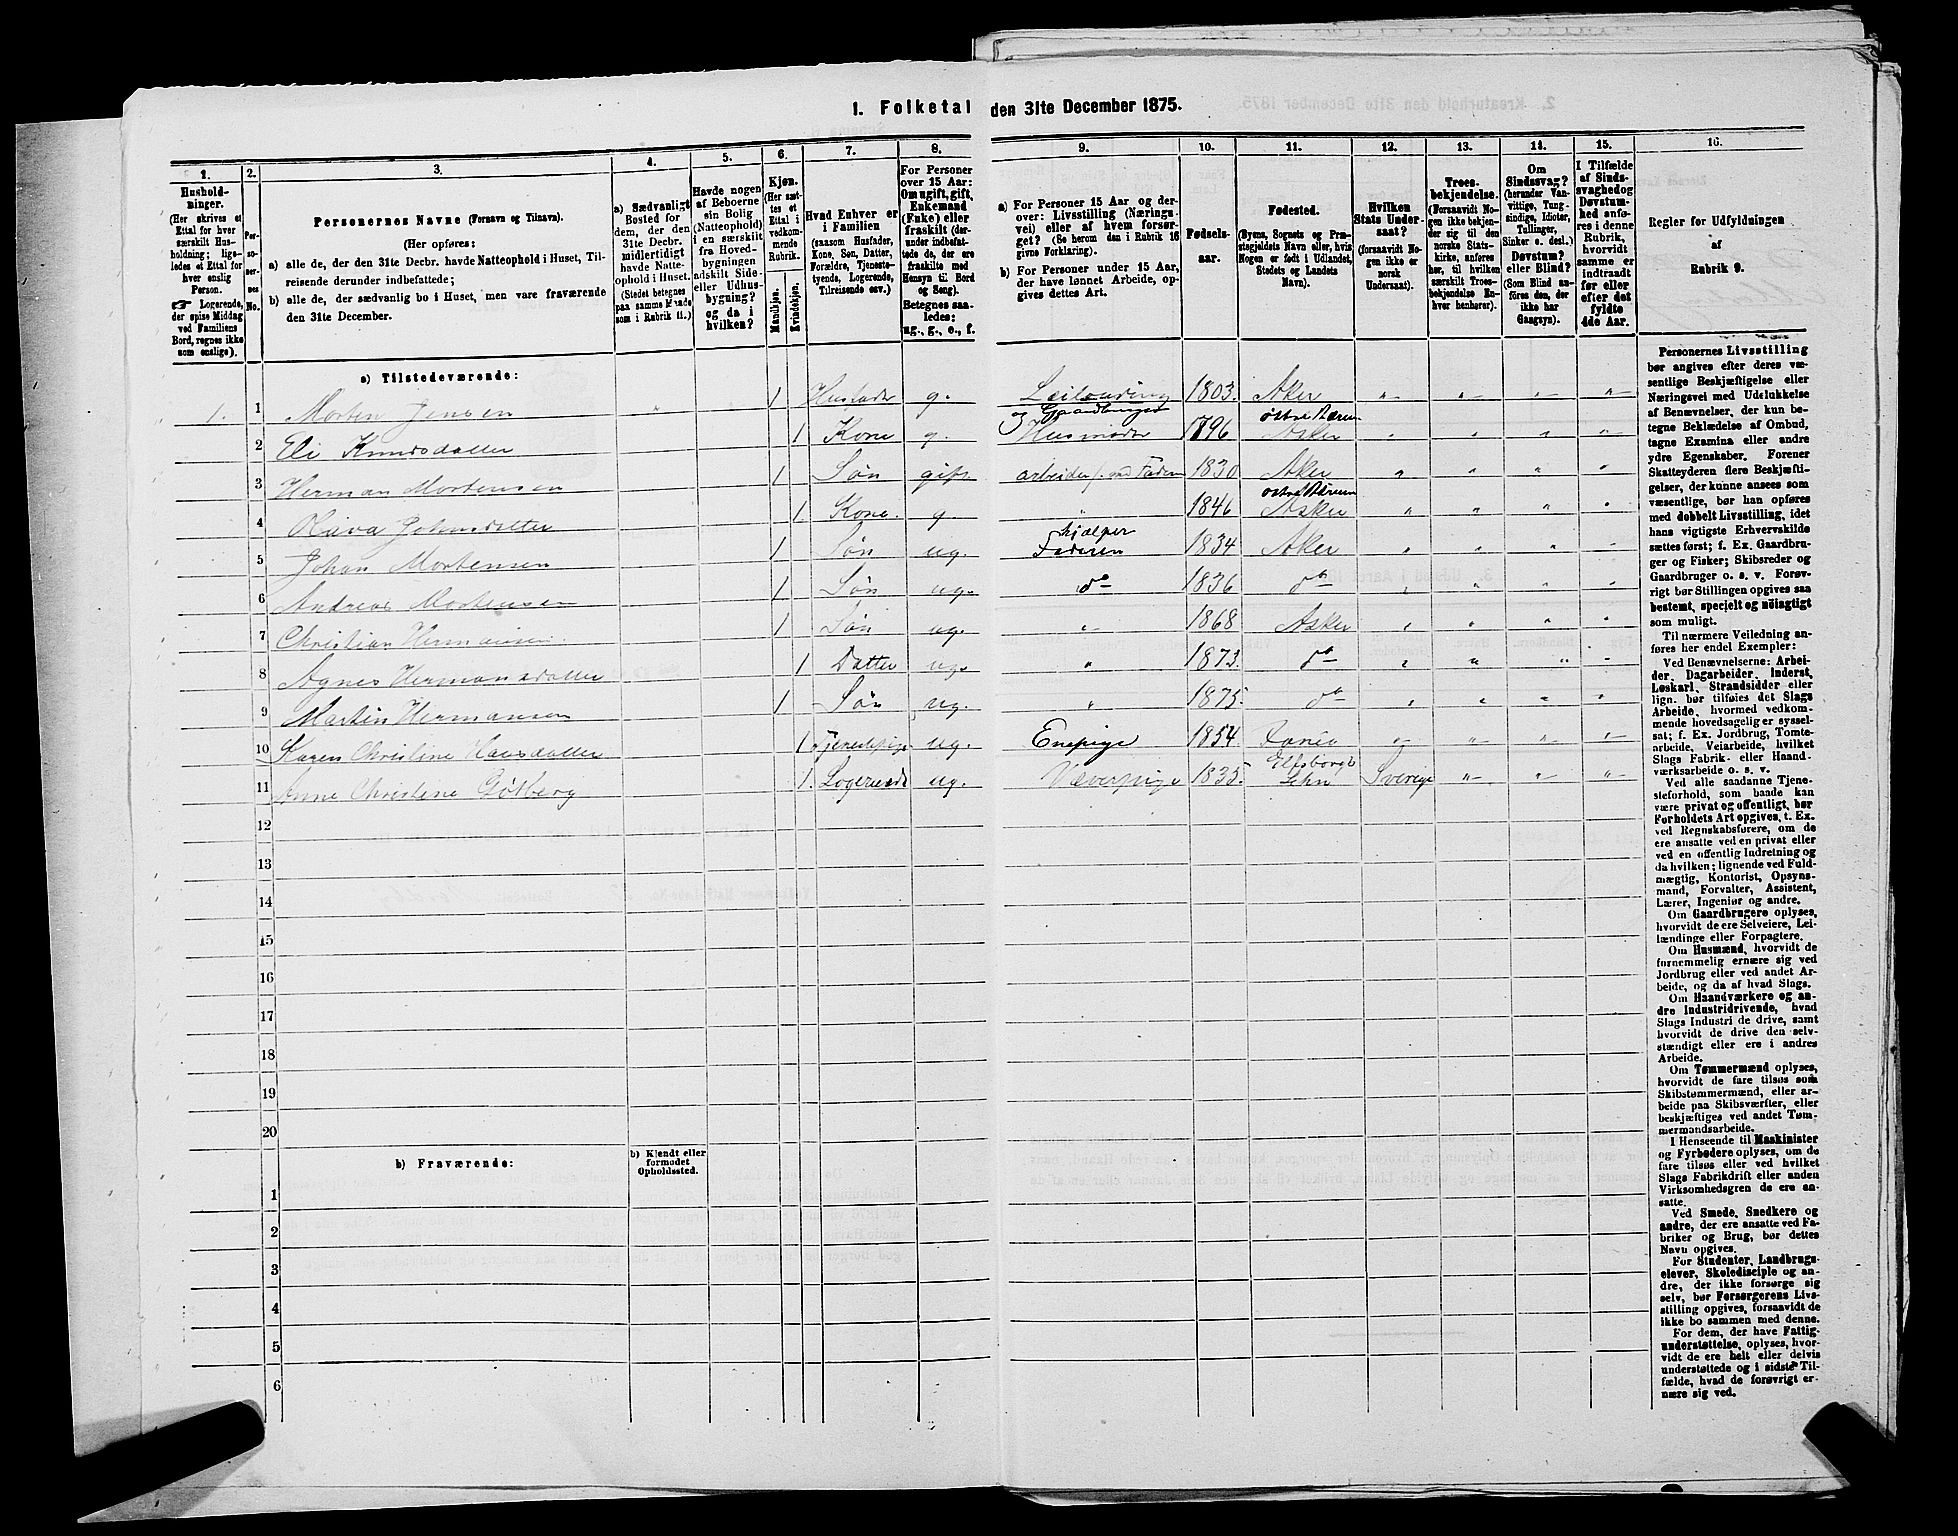 1. Folketal den 31te December 1875.
1. 2. 3. 4. 5. 6. 7. 8. 9. 10. 11. 12. 13. 14. 15. 16.
Hushold-
ninger.
(Her skrives et
Ettal for hver
særskilt Hus-
holdning; lige-
ledes et Ettal for
hver enslig
Person.
☞ Logerende,
der spise Middag
ved Familiens
Bord, regnes ikke
som enslige).
Per-
so-
ner-
nes
No.
Personernes Navne (Fornavn og Tilnavn).
(Her opføres:
a) alle de, der den 31te Decbr. havde Natteophold i Huset, Til-
reisende derunder indbefattede;
b) alle de, der sædvanlig bo i Huset, men vare fraværende
den 31te December.
a) Sædvanligt
Bosted for
dem, der den
31te Decbr.
midlertidigt
havde Natte-
ophold i Huset.
(Stedet betegnes
paa samme Maade
som i Rubrik 11.)
Havde nogen
af Beboerne
sin Bolig
(Natteophold)
i en særskilt
fra Hoved-
bygningen
adskilt Side-
eller Udhus-
bygning?
og da i
hvilken?
Kjøn.
(Her sæt-
tes et
Ettal i
vedkom-
mende
Rubrik.
Mandkjøn.
Kvindekjøn.
Hvad Enhver er
i Familien
(saasom Husfader,
Kone, Søn, Datter,
Forældre, Tjeneste-
tyende, Logerende,
Tilreisende osv.)
For Personer
over 15 Aar:
Om ugift, gift,
Enkemand
(Enke) eller
fraskilt (der-
under indbefat-
tede de, der ere
fraskilte med
Hensyn til Bord
og Seng).
Betegnes saa-
ledes:
ug., g., e., f.
a) For Personer 15 Aar og der-
over: Livsstilling (Nærings-
vei) eller af hvem forsør-
get? (Se herom den i Rubrik 16
givne Forklaring).
b) For Personer under 15 Aar,
der have lønnet Arbeide, op-
gives dettes Art.
Fødsels-
aar.
Fødested.
(Byens, Sognets og Præ-
stegjeldets Navn eller, hvis
Nogen er født i Udlandet,
Stedets og Landets
Navn).
Hvilken
Stats Under-
saat?
(forsaavidt No-
gen ikke er
norsk
Undersaat).
Troes-
bekjendelse.
(Forsaavidt No-
gen ikke bekjen-
der sig til den
norske Stats-
kirke, anføres
her, til hvilken
særskilt Troes-
bekjendelse En-
hver henhører).
Om
Sindssvag?
(herunder Van-
vittige, Tung-
sindige, Idioter,
Tullinger,
Sinker o. desl.)
Døvstum?
eller Blind?
(Som Blind an-
føres den, der
ikke har
Gangsyn).
I Tilfælde
af Sinds-
svaghed og
Døvstum-
hed anfø-
res i denne
Rubrik,
hvorvidt
samme er
indtraadt
før eller
efter det
fyldte
4de Aar.
Regler for Udfyldningen
af
Rubrik 9.
a) Tilstedeværende:
1. 1 Morten Jensen " 1 Husfader g. Leilænding 1803. Aker " " "
og Gaardbruger
2 Eli Knudsdatter 1 Kone g. Husmoder 1796 Asker østre Bærum " " " "
3 Herman Mortensen 1 Søn gift arbeider f. ved Faderen 1830 Aker " " " "
4 Oliva Johnsdatter 1 Kone. g " 1846 Asker østre Bærum " " " "
5 Johan Mortensen 1 Søn ug. hjælper Faderen 1834 Aker " " " "
6 Andreas Mortensen 1 Søn ug. do 1836 do " " " "
7 Christian Hermansen. 1 Søn ug. " 1868 Asker " " " "
8 Agnes Hermansdatter 1 Datter ug. " 1873. do " " " "
9 Martin Hermansen 1 Søn ug. " 1875. do " " " "
10 Karen Christine Hansdatter 1 Tjenestepige ug. 1854. " " " "
11 Anne Christine Gøtberg 1. Logerende ug. Væverpige 1835. Elfsborgs Lehn Sverige " " "
12
13
14
15
16
17
18
19
20
b) Fraværende:
b) Kjendt eller
formodet
Opholdssted.
1
2
3
4
5
6
Personernes Livsstilling
bør angives efter deres væ-
sentlige Beskjæftigelse eller
Næringsvei med Udelukkelse
af Benævnelser, der kun be-
tegne Beklædelse af Ombud,
tagne Examina eller andre
ydre Egenskaber. Forener
Skatteyderen flere Beskjæfti-
gelser, der kunne ansees som
væsentlige, bør han opføres
med dobbelt Livsstilling, idet
hans vigtigste Erhvervskilde
sættes først; f. Ex. Gaardbru-
ger og Fisker; Skibsreder og
Gaardbruger o. s. v. Forøv-
rigt bør Stillingen opgives saa
bestemt, specielt og nöiagtigt
som muligt.
Til nærmere Veiledning an-
føres her endel Exempler:
Ved Benævnelserne: Arbei-
der, Dagarbeider, Inderst,
Løskarl, Strandsidder eller
lign. bør tilføies det Slags
Arbeide, hvormed vedkom-
mende hovedsagelig er syssel-
sat; f. Ex. Jordbrug, Tomte-
arbeide, Veiarbeide, hvilket
Slags Fabrik- eller Haand-
værksarbeide o. s. v.
Ved alle saadanne Tjene-
steforhold, som baade kan
være privat og offentligt, bør
Forholdets Art opgives, t. Ex.
ved Regnskabsførere, om de
ere ansatte ved en privat eller
ved en offentlig Indretning og
da hvilken; lignende ved Fuld-
mægtig, Kontorist, Opsyns-
mand, Forvalter, Assistent,
Lærer, Ingeniør og andre.
Om Gaardbrugere oplyses,
hvorvidt de ere Selveiere, Lei-
lændinge eller Forpagtere.
Om Husmænd, hvorvidt de
fornemmelig ernære sig ved
Jordbrug eller ved andet Ar-
beide, og da af hvad Slags.
Om Haandværkere og an-
dre Industridrivende, hvad
Slags Industri de drive, samt
hvorvidt de drive den selv-
stændigt eller ere i andres
Arbeide.
Om Tømmermænd oplyses,
hvorvidt de fare tilsøs som
Skibstømmermænd, eller ar-
beide paa Skibsværfter, eller
beskjæftiges ved andet Tøm-
mermandsarbeide.
I Henseende til Maskinister
og Fyrbødere oplyses, om de
fare tilsøs eller ved hvilket
Slags Fabrikdrift eller anden
Virksomhedsgren de ere an-
satte.
Ved Smede, Snedkere og
andre, der ere ansatte ved Fa-
briker og Brug, bør dettes
Navn opgives.
For Studenter, Landbrugs-
elever, Skoledisciple og an-
dre, der ikke forsørge sig
selv, bør Forsørgerens Livs-
stilling opgives, forsaavidt de
ikke bo sammen med denne.
For dem, der have Fattig-
understøttelse, oplyses, hvor-
vidt de ere helt eller delvis
understøttede og i sidste Til-
fælde, hvad de forøvrigt er-
nære sig ved.